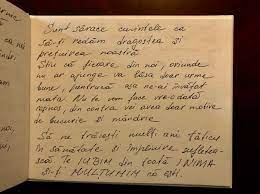 Sunt sărace cuvintele ca
să-ți redăm dragostea și
prețuirea noastră
Știu că fiecare din noi, oriunde
ne ar ajunge va lăsa doar urme
bune, pentrucă așa ne-ai învățat
mata. Nu te vom face vreodată
rușinos, din contra vei avea doar motive
de bucurie și mândrie
Să ne trăiești mulți ani tăticu
în sănătate și împlinire sufletea-
scă. Te IUBIM din toată INIMA
și-ți MULȚUMIM că ești.